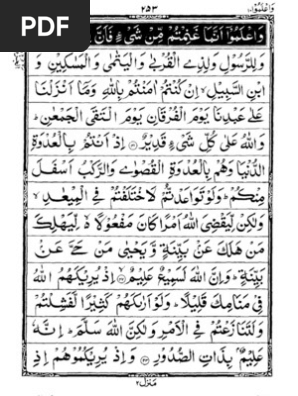 PDF
۲۵۳
وَاعْلَمُوْۤا
وَاعْلَمُوْۤا اَنَّمَا غَنِمْتُمْ مِّنْ شَیْءٍ فَاَنَّ
وَلِلرَّسُوْلِ وَلِذِی الْقُرْبٰی وَالْیَتٰمٰی وَالْمَسٰكِیْنِ وَ
ابْنِ السَّبِیْلِ ۙ اِنْ كُنْتُمْ اٰمَنْتُمْ بِاللّٰهِ وَمَاۤ اَنْزَلْنَا
عَلٰی عَبْدِنَا یَوْمَ الْفُرْقَانِ یَوْمَ الْتَقَی الْجَمْعٰنِ ؕ
وَاللّٰهُ عَلٰی كُلِّ شَیْءٍ قَدِیْرٌ ۝ اِذْ اَنْتُمْ بِالْعُدْوَةِ
الدُّنْیَا وَهُمْ بِالْعُدْوَةِ الْقُصْوٰی وَالرَّكْبُ اَسْفَلَ
مِنْكُمْ ؕ وَلَوْ تَوَاعَدْتُّمْ لَاخْتَلَفْتُمْ فِی الْمِیْعٰدِ ۙ
وَلٰكِنْ لِّیَقْضِیَ اللّٰهُ اَمْرًا كَانَ مَفْعُوْلًا ۙ۬ لِّیَهْلِكَ
مَنْ هَلَكَ عَنْۢ بَیِّنَةٍ وَّیَحْیٰی مَنْ حَیَّ عَنْۢ
بَیِّنَةٍ ؕ وَاِنَّ اللّٰهَ لَسَمِیْعٌ عَلِیْمٌ ۝ اِذْ یُرِیْكَهُمُ اللّٰهُ
فِیْ مَنَامِكَ قَلِیْلًا ؕ وَلَوْ اَرٰىكَهُمْ كَثِیْرًا لَّفَشِلْتُمْ
وَلَتَنَازَعْتُمْ فِی الْاَمْرِ وَلٰكِنَّ اللّٰهَ سَلَّمَ ؕ اِنَّهٗ
عَلِیْمٌۢ بِذَاتِ الصُّدُوْرِ ۝ وَاِذْ یُرِیْكُمُوْهُمْ اِذِ
مَنْزِل ۲